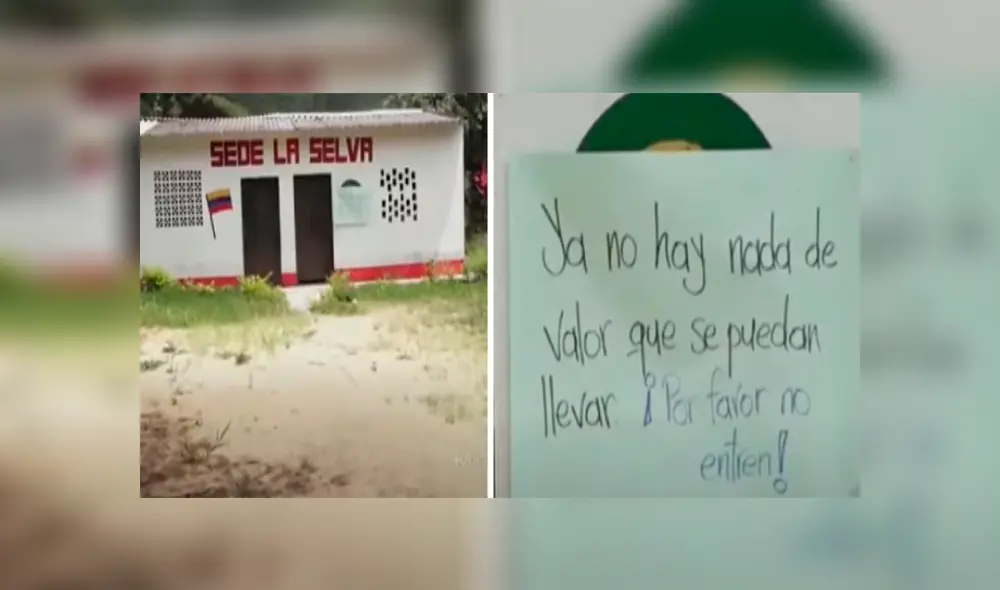 SEDE LA SELVA
Ya no hay nada de
valor que se puedan
llevar ¡Por favor no
entren!